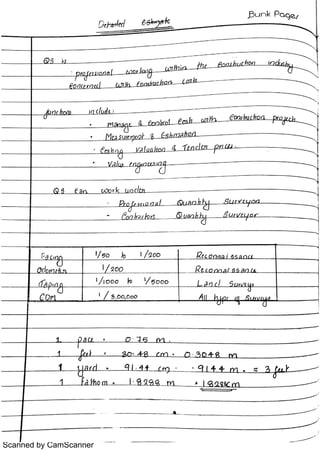 Bunk Pages
Detailed Estimate
QS is
professional working within the Construction industry
concerned with Construction costs
functions include :
• manage & control costs with Construction projects
• Measurement & Estimation
• Costing Valuation & Tender prices
• Value engineering
QS can work under
- Professional Quantity Surveyors
- Contractors Quantity Surveyor
Pacing 1/50 to 1/200 Reconnaissance
Odometer 1/200 Reconnaissance
Taping 1/1000 to 1/5000 Land Survey
EDM 1/3,00,000 All types of Surveys
1 pace = 0.75 m.
1 feet = 30.48 cm = 0.3048 m
1 yard = 91.44 cm = .9144 m = 3 feet
1 fathom = 1.8288 m
Scanned by CamScanner